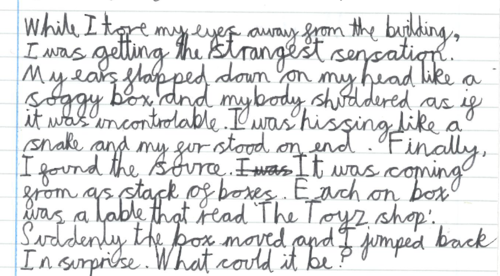 While I tore my eyes away from the building,
I was getting the strangest sensation.
My ears flapped down on my head like a
soggy box and my body shuddered as if
it was uncontrolable. I was hissing like a
snake and my fur stood on end. Finally,
I found the source. I was It was coming
from as stack of boxes. Each on box
was a lable that read 'The Toyz shop'.
Suddenly the box moved and I jumped back
In surprise. What could it be?